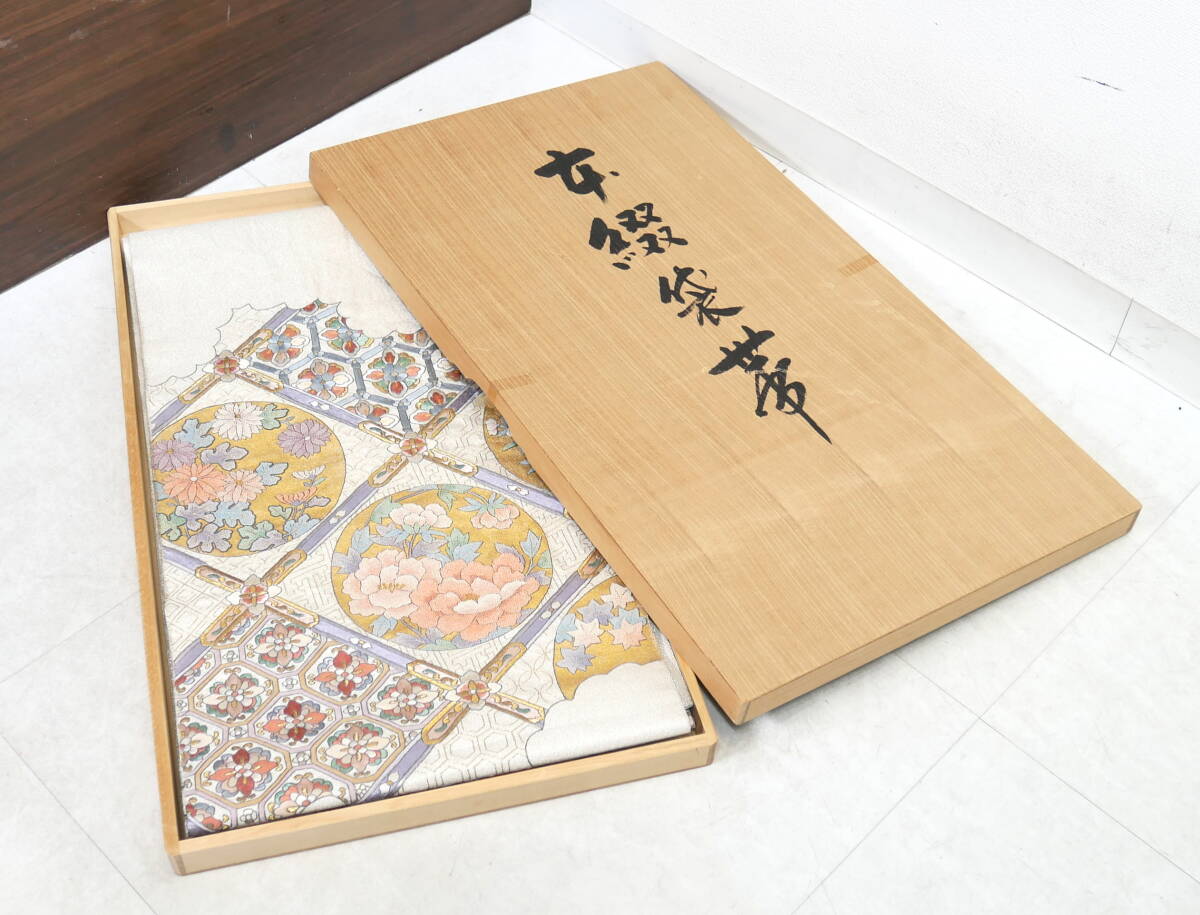 本綴袋帯